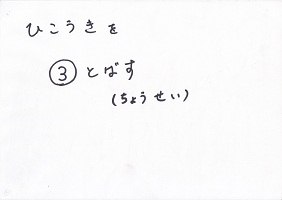 ひこうきを
③とばす
(ちょうせい)